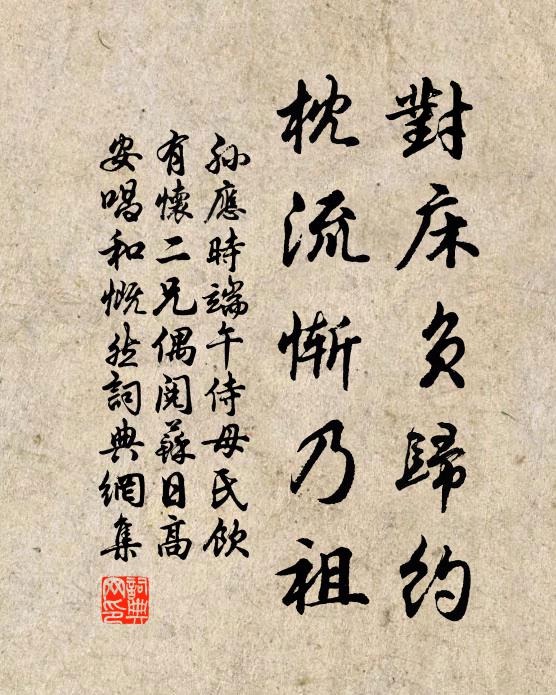 對床負歸約
枕流慚乃祖
孫應時端午侍母氏飲
有懷二兄偶閱蘇日高
安唱和慨然詞典網集
詞典
網印